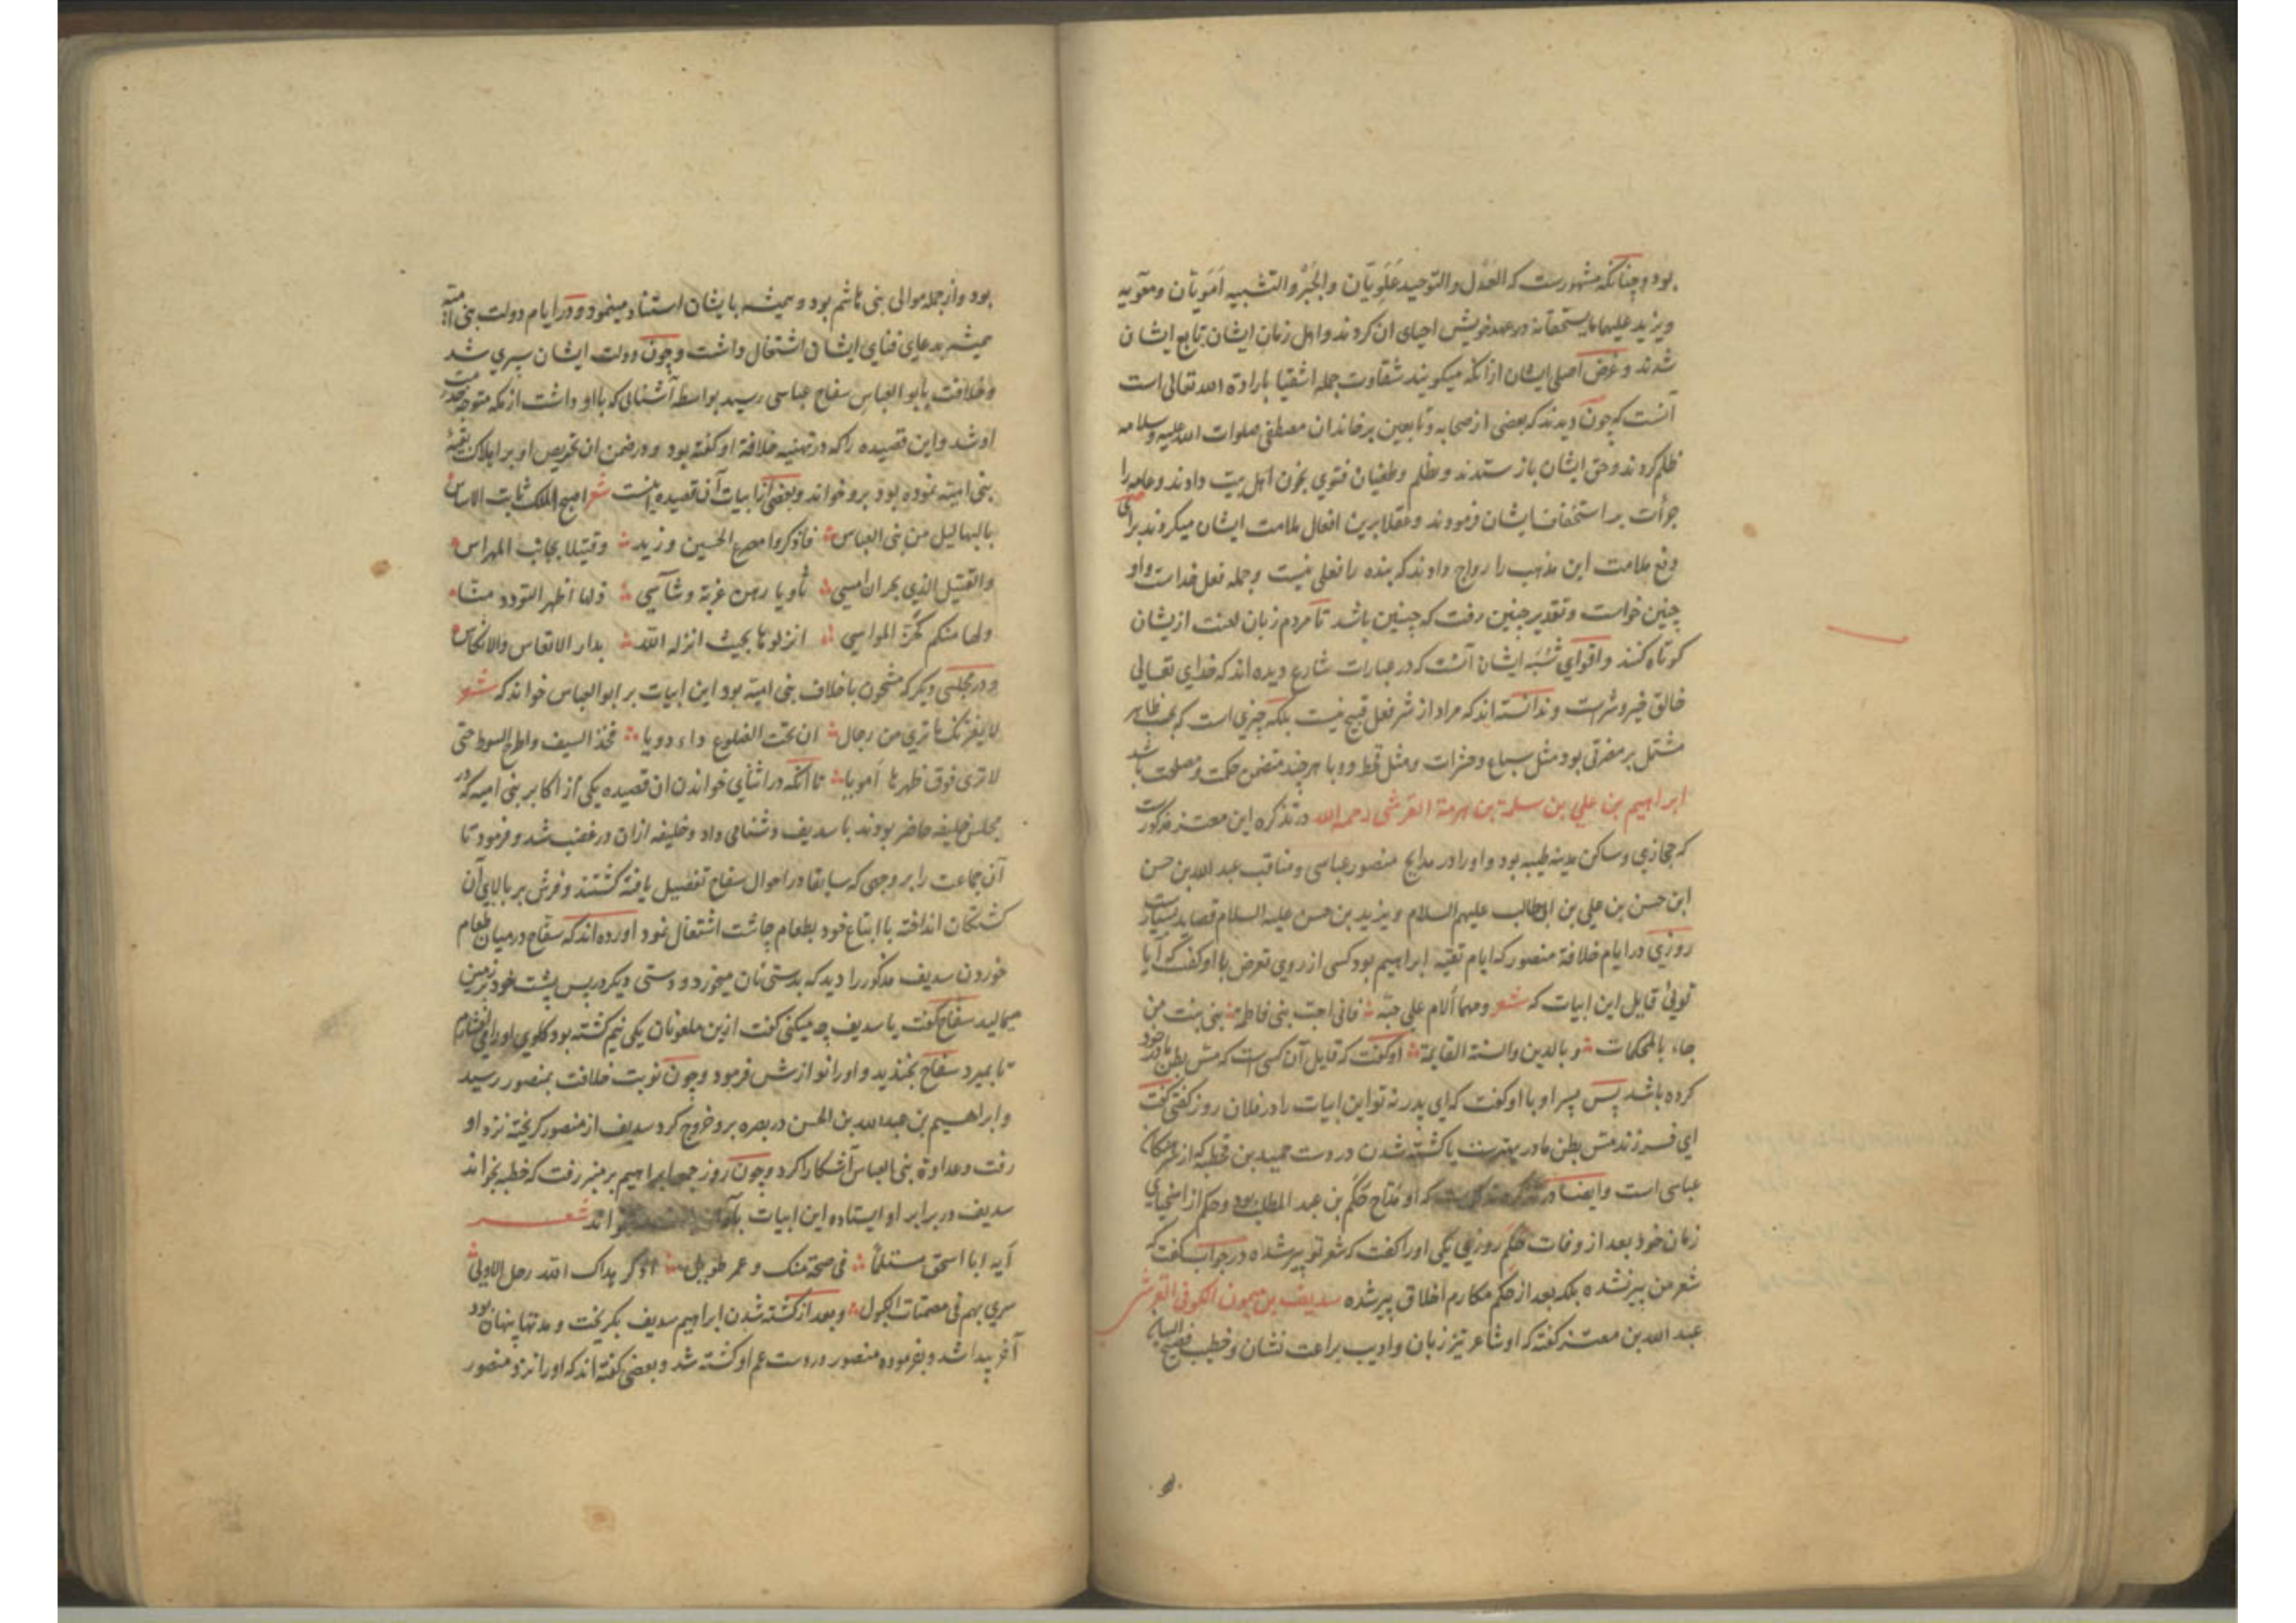 بود و چنانکه مشهورست که العَدْل والتوحید عَلَویّان والجَبْر والتشبیه اَمَویّان ومعویه
ویزید علیهما مایستحقانه در عهد خویش احیای ان کردند واهل زمان ایشان تابع ایشان
شدند وغرض اصلی ایشان ازانکه میکویند شقاوت جمله اشقیا بارادة الله تعالی است
آنست که چون دیدند که بعضی از صحابه وتابعین بر خاندان مصطفی صلوات الله علیه وسلامه
ظلم کردند وحق ایشان باز ستدند وبظلم وطغیان فتوی بخون اهل بیت دادند وعامه را
جرأت بر استخفاف ایشان فرمودند وعقلا برین افعال ملامت ایشان میکردند برای
دفع ملامت این مذهب را رواج دادند که بنده را فعلی نیست وجمله فعل خداست واو
چنین خواست وتقدیر چنین رفت که چنین باشد تا مردم زبان لعنت ازیشان
کوتاه کنند واقوای شُبَه ایشان آنست که در عبارات شارع دیده اند که خدای تعالی
خالق خیر وشر است وندانسته اند که مراد از شر فعل قبیح نیست بلکه چیزی است که بظاهر
مشتمل بر مضرتی بود مثل سباع وحشرات ومثل قحط ووبا هرچند متضمن حکمت ومصلحت باشد
ابراهیم بن علی بن سلمة بن هرمة القرشی رحمه الله در تذکره ابن معتز مذکورست
که حجازی وساکن مدینه طیبه بود واورا در مدایح منصور عباسی ومناقب عبد الله بن حسن
ابن حسن بن علی بن ابی طالب علیهم السلام ویزید بن حسن علیه السلام قصاید بسیارست
روزی در ایام خلافة منصور که ایام تقیه ابراهیم بود کسی از روی تعرض با او کفت که آیا
توئی قایل این ابیات که شعر ومهما ألام علی حبّه فانی احب بنی فاطمه بنی بنت من
جاء بالمحکمات و بالدین والسنة القایمة او کفت که قایل آن کسی است که مص بطن مادر خود
کرده باشد پس پسر او با او کفت که ای پدر نه تو این ابیات را در فلان روز کفتی کفت
ای فرزند مص بطن مادر بهترست یا کشته شدن در دست حمید بن قحطبه که از
عباسی است وایضا در تذکره مذکورست که او مدّاح حَکَم بن عبد المطلب بود وحکم از اسخیای
زمان خود بعد از وفات حکم روزی یکی اورا کفت که شعر تو پیر شده در جواب کفت که
شعر من پیر نشده بلکه بعد از حکم مکارم اخلاق پیر شده سدیف بن میمون الکوفی القرشی
عبد الله بن معتز کفته که او شاعر تیز زبان وادیب براعت نشان وخطیب فصیح البیان
بود واز جمله موالی بنی هاشم بود وهمیشه بایشان استناد مینمود ودر ایام دولت بنی امیّه
همیشه بدعای فنای ایشان اشتغال داشت وچون دولت ایشان سپری شد
وخلافت بابو العباس سفاح عباسی رسید بواسطه آشنائی که با او داشت از مکه متوجه خدمت
او شد واین قصیده را که در تهنیه خلافة او کفته بود ودر ضمن ان تحریص او بر اهلاک بقیّهٔ
بنی امیّه نموده بود برو خواند وبعضی از ابیات آن قصیده اینست شعر اصبح الملک ثابت الاساس
بالبهالیل من بنی العباس فاذکروا مصرع الحسین وزید وقتیلا بجانب المهراس
والقتیل الذی بحران امسی ثاویا رهن غربة وتناسی ذلها اظهر التودد منها
وبها منکم کحزّ المواسی انزلوها بحیث انزلها الله بدار الاتعاس والانکاس
ودر مجلسی دیکر که مشحون باخلاف بنی امیّه بود این ابیات بر ابو العباس خواند که شعر
لا یغرنک ما تری من رجال ان تحت الضلوع داء دویا فخذ السیف واطرح السوط حتی
لا تری فوق ظهرها اَمویا تا آنکه در اثنای خواندن ان قصیده یکی از اکابر بنی امیه که در
مجلس خلیفه حاضر بودند با سدیف دشنامی داد وخلیفه ازان در غضب شد وفرمود تا
آن جماعت را بر وجهی که سابقا در احوال سفاح تفصیل یافته کشتند وفرش بر بالای آن
کشتکان انداخته با اتباع خود بطعام چاشت اشتغال نمود آورده اند که سفاح در میان طعام
خوردن سدیف مذکور را دید که بدستی نان میخورد ودستی دیکر در پس پشت خود بزمین
میمالید سفاح کفت یا سدیف چه میکنی کفت ازین ملعونان یکی نیم کشته بود کلوی اورا می فشارم
تا بمیرد سفاح بخندید واورا نوازش فرمود وچون نوبت خلافت بمنصور رسید
وابراهیم بن عبد الله بن الحسن در بصره برو خروج کرد سدیف از منصور کریخته نزد او
رفت وعداوة بنی العباس آشکارا کرد وچون روز جمعه ابراهیم بر منبر رفت که خطبه بخواند
سدیف در برابر او ایستاده این ابیات بآواز خواند شعر
ایه ابا اسحق مستلما فی صحة منک وعمر طویل اذکر هداک الله رحل الاولی
سری بهم فی مصمتات الکبول وبعد از کشته شدن ابراهیم سدیف بکریخت ومدتها پنهان بود
آخر پیدا شد وبفرموده منصور در دست عم او کشته شد وبعضی کفته اند که اورا نزد منصور